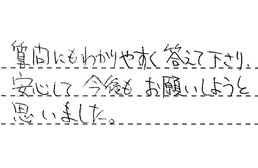 質問にもわかりやすく答えて下さり、
安心して今後もお願いしようと
思いました。